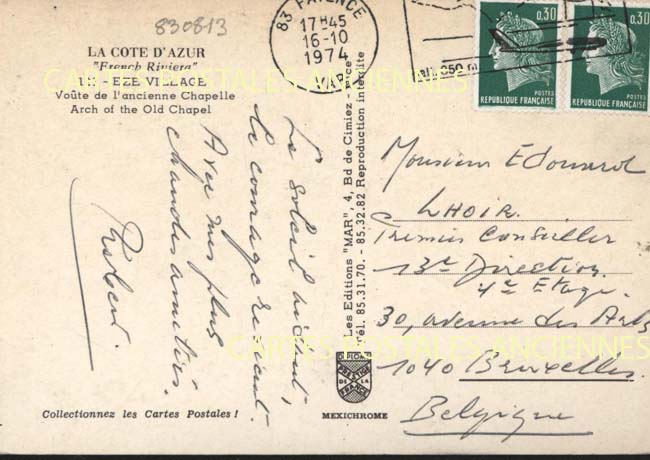 830813
LA COTE D'AZUR
"French Riviera"
115 - EZE VILLAGE
Voûte de l'ancienne Chapelle
Arch of the Old Chapel
Le soleil aidant,
le courage revient.
Avec mes plus
chaudes amitiés.
Robert.
Collectionnez les Cartes Postales !
Les Editions "MAR", 4, Bd de Cimiez - Nice
Tél. 85.31.70. - 85.32.82 Reproduction interdite
DIPLOME
PRESTIGE
DE LA
FRANCE
MEXICHROME
83 FAYENCE
17H45
16-10
1974
VAR
alt. 350 m
0,30
POSTES
REPUBLIQUE FRANÇAISE
0,30
POSTES
REPUBLIQUE FRANÇAISE
Monsieur Edouard
LHOIR
Premier Conseiller
13e Direction
4e Etage.
30, avenue des Arts
1040 Bruxelles.
Belgique
CARTES POSTALES ANCIENNES
CARTES POSTALES ANCIENNES